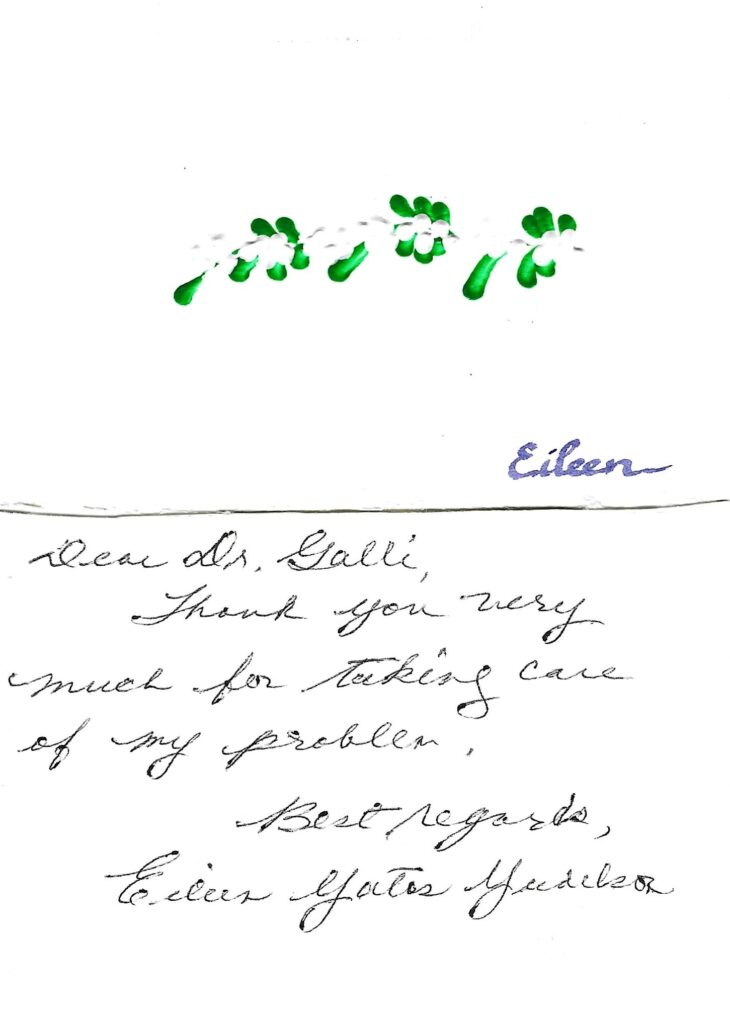 Eileen
Dear Dr. Galli,
Thank you very
much for taking care
of my problem.
Best regards,
Eileen Yates Yudelson